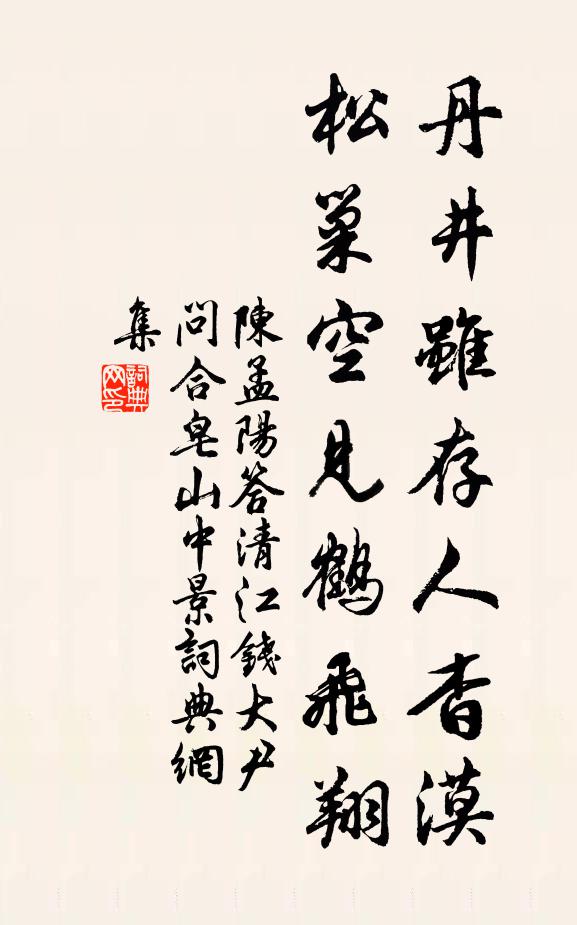 丹井雖存人杳漠
松巢空見鶴飛翔
陳孟陽答清江錢大尹
問合皂山中景詞典網
集
詞典网印